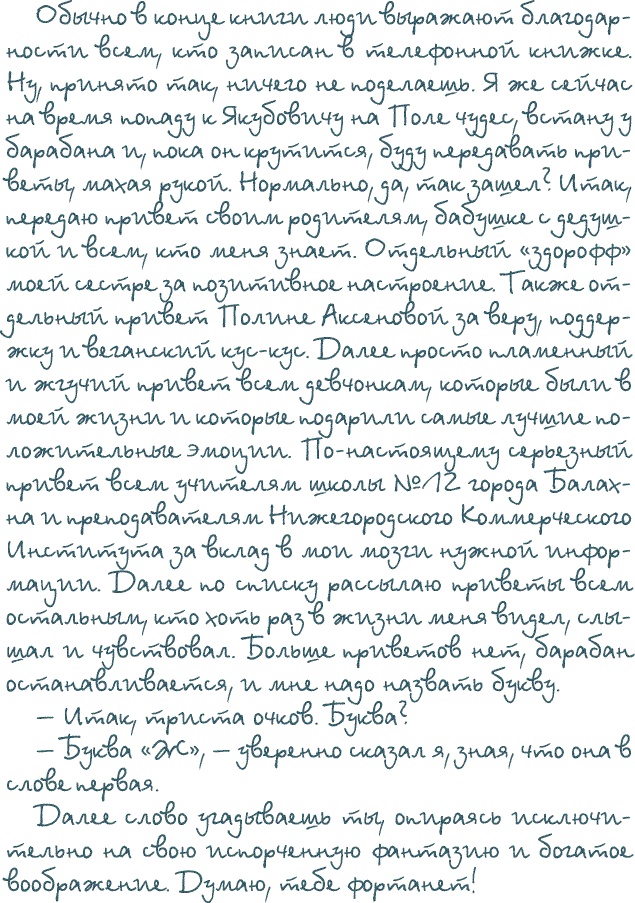 Обычно в конце книги люди выражают благодар-
ности всем, кто записан в телефонной книжке.
Ну, принято так, ничего не поделаешь. Я же сейчас
на время попаду к Якубовичу на Поле чудес, встану у
барабана и, пока он крутится, буду передавать при-
веты, махая рукой. Нормально, да, так зашел? Итак,
передаю привет своим родителям, бабушке с дедуш-
кой и всем, кто меня знает. Отдельный «здорофф»
моей сестре за позитивное настроение. Также от-
дельный привет Полине Аксеновой за веру, поддер-
жку и веганский кус-кус. Далее просто пламенный
и жгучий привет всем девчонкам, которые были в
моей жизни и которые подарили самые лучшие по-
ложительные эмоции. По-настоящему серьезный
привет всем учителям школы №12 города Балах-
на и преподавателям Нижегородского Коммерческого
Института за вклад в мои мозги нужной инфор-
мации. Далее по списку рассылаю приветы всем
остальным, кто хоть раз в жизни меня видел, слы-
шал и чувствовал. Больше приветов нет, барабан
останавливается, и мне надо назвать букву.
– Итак, триста очков. Буква?
– Буква «Ж», – уверенно сказал я, зная, что она в
слове первая.
Далее слово угадываешь ты, опираясь исключи-
тельно на свою испорченную фантазию и богатое
воображение. Думаю, тебе фортанет!